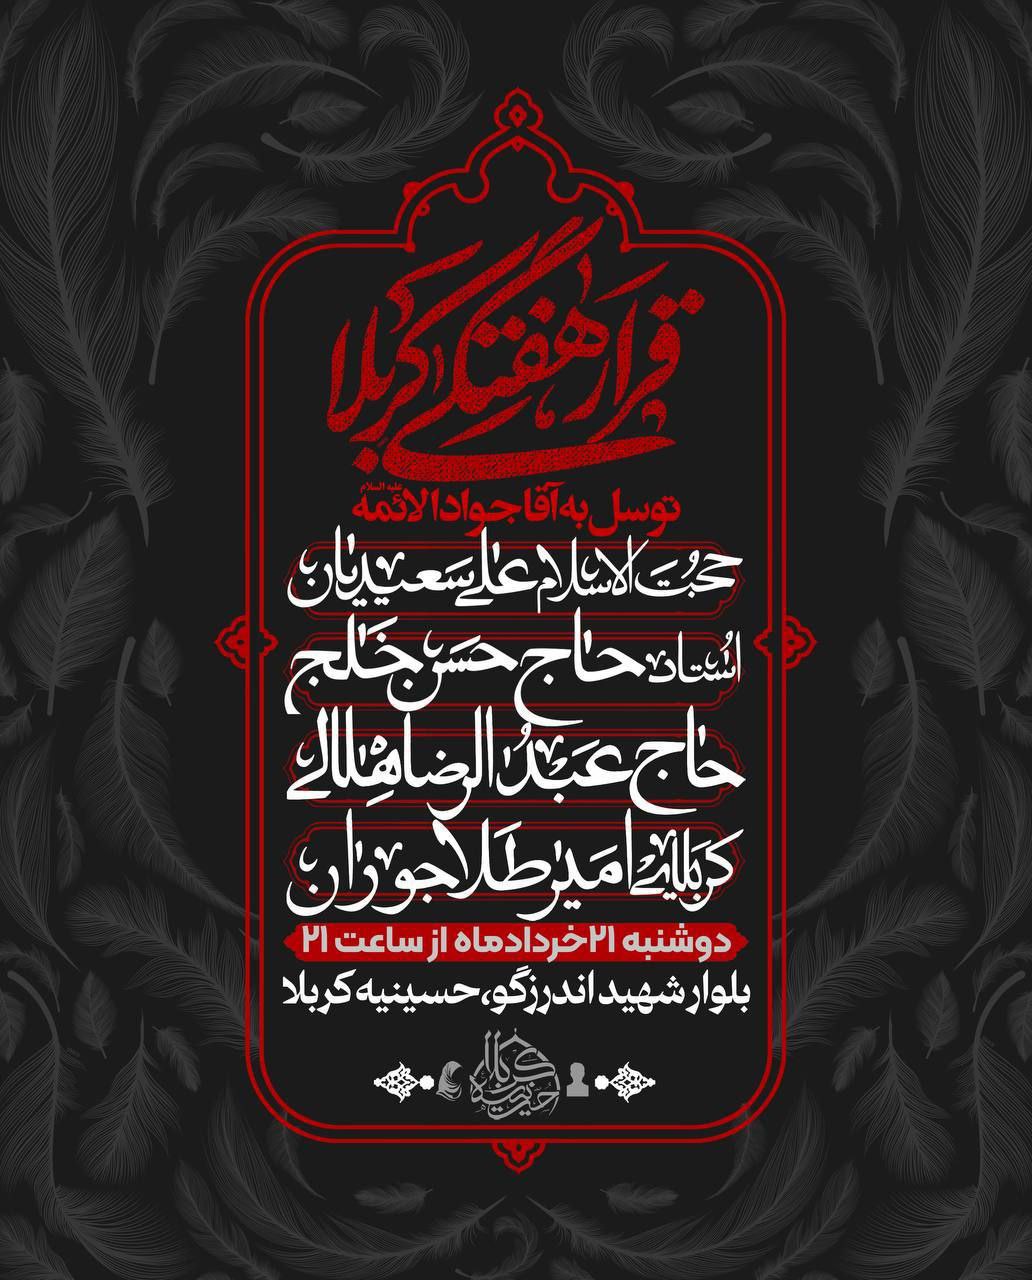 قرار هفتگی کربلا
توسل به آقا جواد الائمه علیه السلام
حجت الاسلام علی سعیدیان
استاد حاج حسن خلج
حاج عبدالرضا هلالی
کربلایی امیر طلاجوران
دوشنبه ۲۱ خردادماه از ساعت ۲۱
بلوار شهید اندرزگو، حسینیه کربلا
حسینیه کربلا